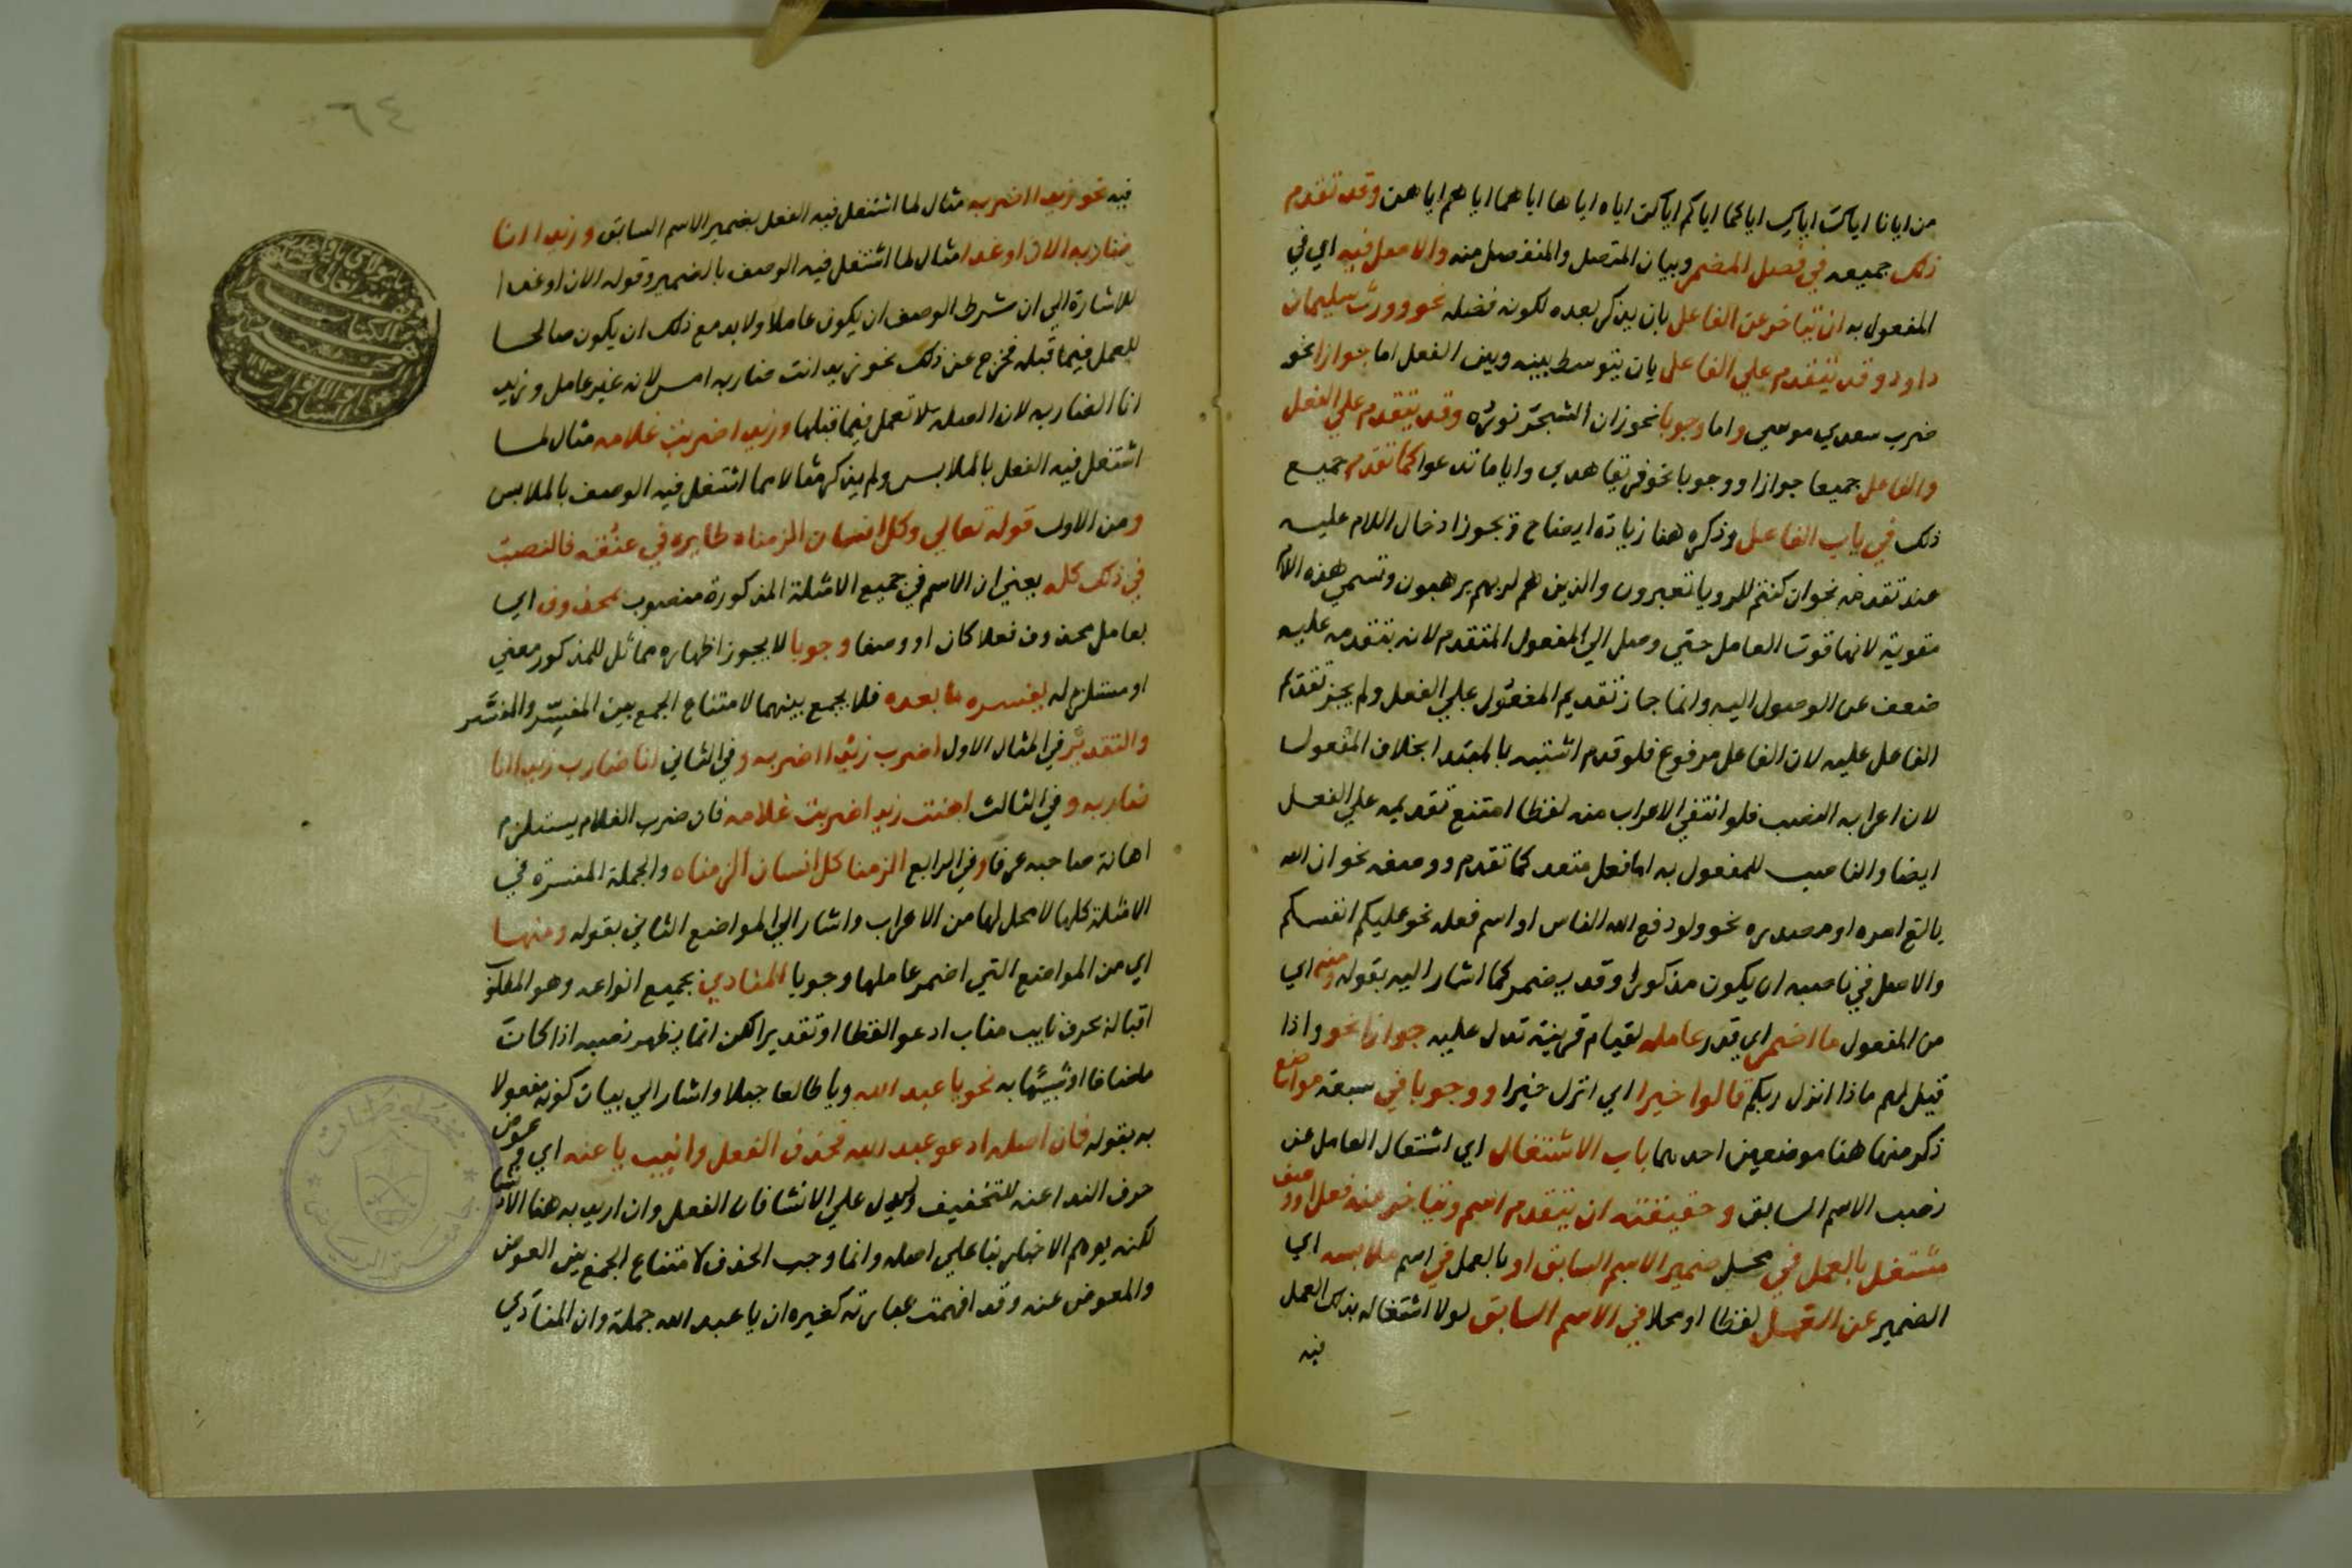 من ايانا اياكَ اياكِ اياكما اياكم اياكن اياه اياها اياهما اياهم اياهن وقد تقدم
ذلك جميعه في فصل المضمر وبيان المتصل والمنفصل منه والاصل فيه اي في
المفعول به ان يتاخر عن الفاعل بان يذكر بعده لكونه فضله نحو وورث سليمان
داود وقد يتقدم علي الفاعل بان يتوسط بينه وبين الفعل اما جوازا نحو
ضرب سعدي موسي واما وجوبا نحو زان الشجرَ نورُه وقد يتقدم علي الفعل
والفاعل جميعا جوازا ووجوبا نحو فريقا هدي واياما تدعوا كما تقدم جميع
ذلك في باب الفاعل وذكره هنا زيادة ايضاح ويجوز ادخال اللام عليه
عند تقدمه نحو ان كنتم للرويا تعبرون والذين هم لربهم يرهبون وتسمي هذه اللام
مقوية لانها قوت العامل حتي وصل الي المفعول المتقدم لانه بتقدمه عليه
ضعف عن الوصول اليه وانما جاز تقديم المفعول علي الفعل ولم يجز تقدم
الفاعل عليه لان الفاعل مرفوع فلو قدم اشتبه بالمبتدا بخلاف المفعول
لان اعرابه النصب فلو انتفي الاعراب منه لفظا امتنع تقديمه علي الفعل
ايضا والناصب للمفعول به اما فعل متعد كما تقدم او وصفه نحو ان الله
بالغ امره او مصدره نحو ولولا دفع الله الناس او اسم فعله نحو عليكم انفسكم
والاصل في ناصبه ان يكون مذكورا وقد يضمر كما اشار اليه بقوله ومنه اي
من المفعول ما اضمر اي قدر عامله لقيام قرينة تدل عليه جوازا نحو واذا
قيل لهم ماذا انزل ربكم قالوا خيرا اي انزل خيرا ووجوبا في سبعة مواضع
ذكر منها هنا موضعين احدهما باب الاشتغال اي اشتغال العامل عن
نصب الاسم السابق وحقيقته ان يتقدم اسم ويتاخر عنه فعل او وصف
مشتغل بالعمل في محل ضمير الاسم السابق او بالعمل في اسم ملابسه اي
الضمير عن العمل لفظا او محلا في الاسم السابق لولا اشتغاله بذلك العمل
فيه
٦٤
فيه نحو زيدا اضربه مثال لما اشتغل فيه الفعل بضمير الاسم السابق وزيدا انا
ضاربه الان او غدا مثال لما اشتغل فيه الوصف بالضمير وقوله الان او غدا
للاشارة الي ان شرط الوصف ان يكون عاملا ولابد مع ذلك ان يكون صالحا
للعمل فيما قبله فخرج عن ذلك نحو زيد انت ضاربه امس لانه غير عامل وزيد
انا الضاربه لان الصلة لا تعمل فيما قبلها وزيدا ضربت غلامه مثال لما
اشتغل فيه الفعل بالملابس ولم يذكر مثالا لما اشتغل فيه الوصف بالملابس
ومن الاول قوله تعالي وكل انسان الزمناه طايره في عنقه فالنصب
في ذلك كله يعني ان الاسم في جميع الامثلة المذكورة منصوب بمحذوف اي
بعامل محذوف فعلا كان او وصفا وجوبا لا يجوز اظهاره مماثل للمذكور معني
او مستلزم له يفسره ما بعده فلا يجمع بينهما لامتناع الجمع بين المفسِّر والمفسَّر
والتقدير في المثال الاول اضرب زيدا اضربه وفي الثاني انا ضارب زيدا انا
ضاربه وفي الثالث اهنت زيدا ضربت غلامه فان ضرب الغلام يستلزم
اهانة صاحبه عرفا وفي الرابع الزمنا كل انسان الزمناه والجملة المفسرة في
الامثلة كلها لا محل لها من الاعراب واشار الي المواضع الثاني بقوله ومنها
اي من المواضع التي اضمر عاملها وجوبا المنادي بجميع انواعه وهو المطلوب
اقباله بحرف نايب مناب ادعوا لفظا او تقديرا لكن انما يظهر نصبه اذا كان
مضافا او شبيها به نحو يا عبد الله ويا طالعا جبلا واشار الي بيان كونه مفعولا
به بقوله فان اصله ادعو عبد الله فحذف الفعل وانيب يا عنه اي عوض
حرف الندا عنه للتخفيف وليدل علي الانشا فان الفعل وان اريد به هنا الانشا
لكنه يوهم الاخبار بنا علي اصله وانما وجب الحذف لامتناع الجمع بين العوض
والمعوض عنه وقد افهمت عبارته كغيره ان يا عبد الله جملة وان المنادَي